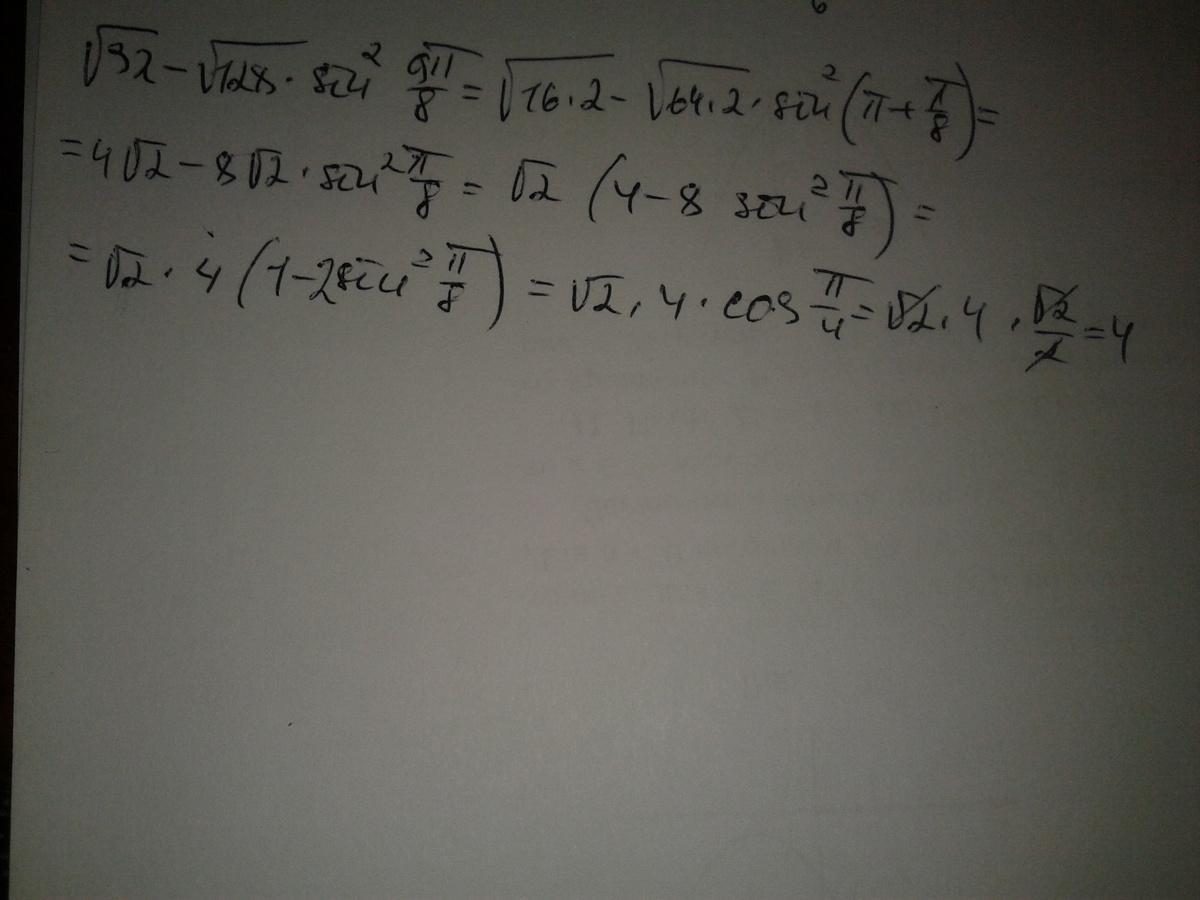 6
√32 - √128 · sin² 9π/8 = √16·2 - √64·2 · sin²(π + π/8) =
= 4√2 - 8√2 · sin² π/8 = √2 (4 - 8 sin² π/8) =
= √2 · 4 (1 - 2sin² π/8) = √2 · 4 · cos π/4 = √2 · 4 · √2/2 = 4